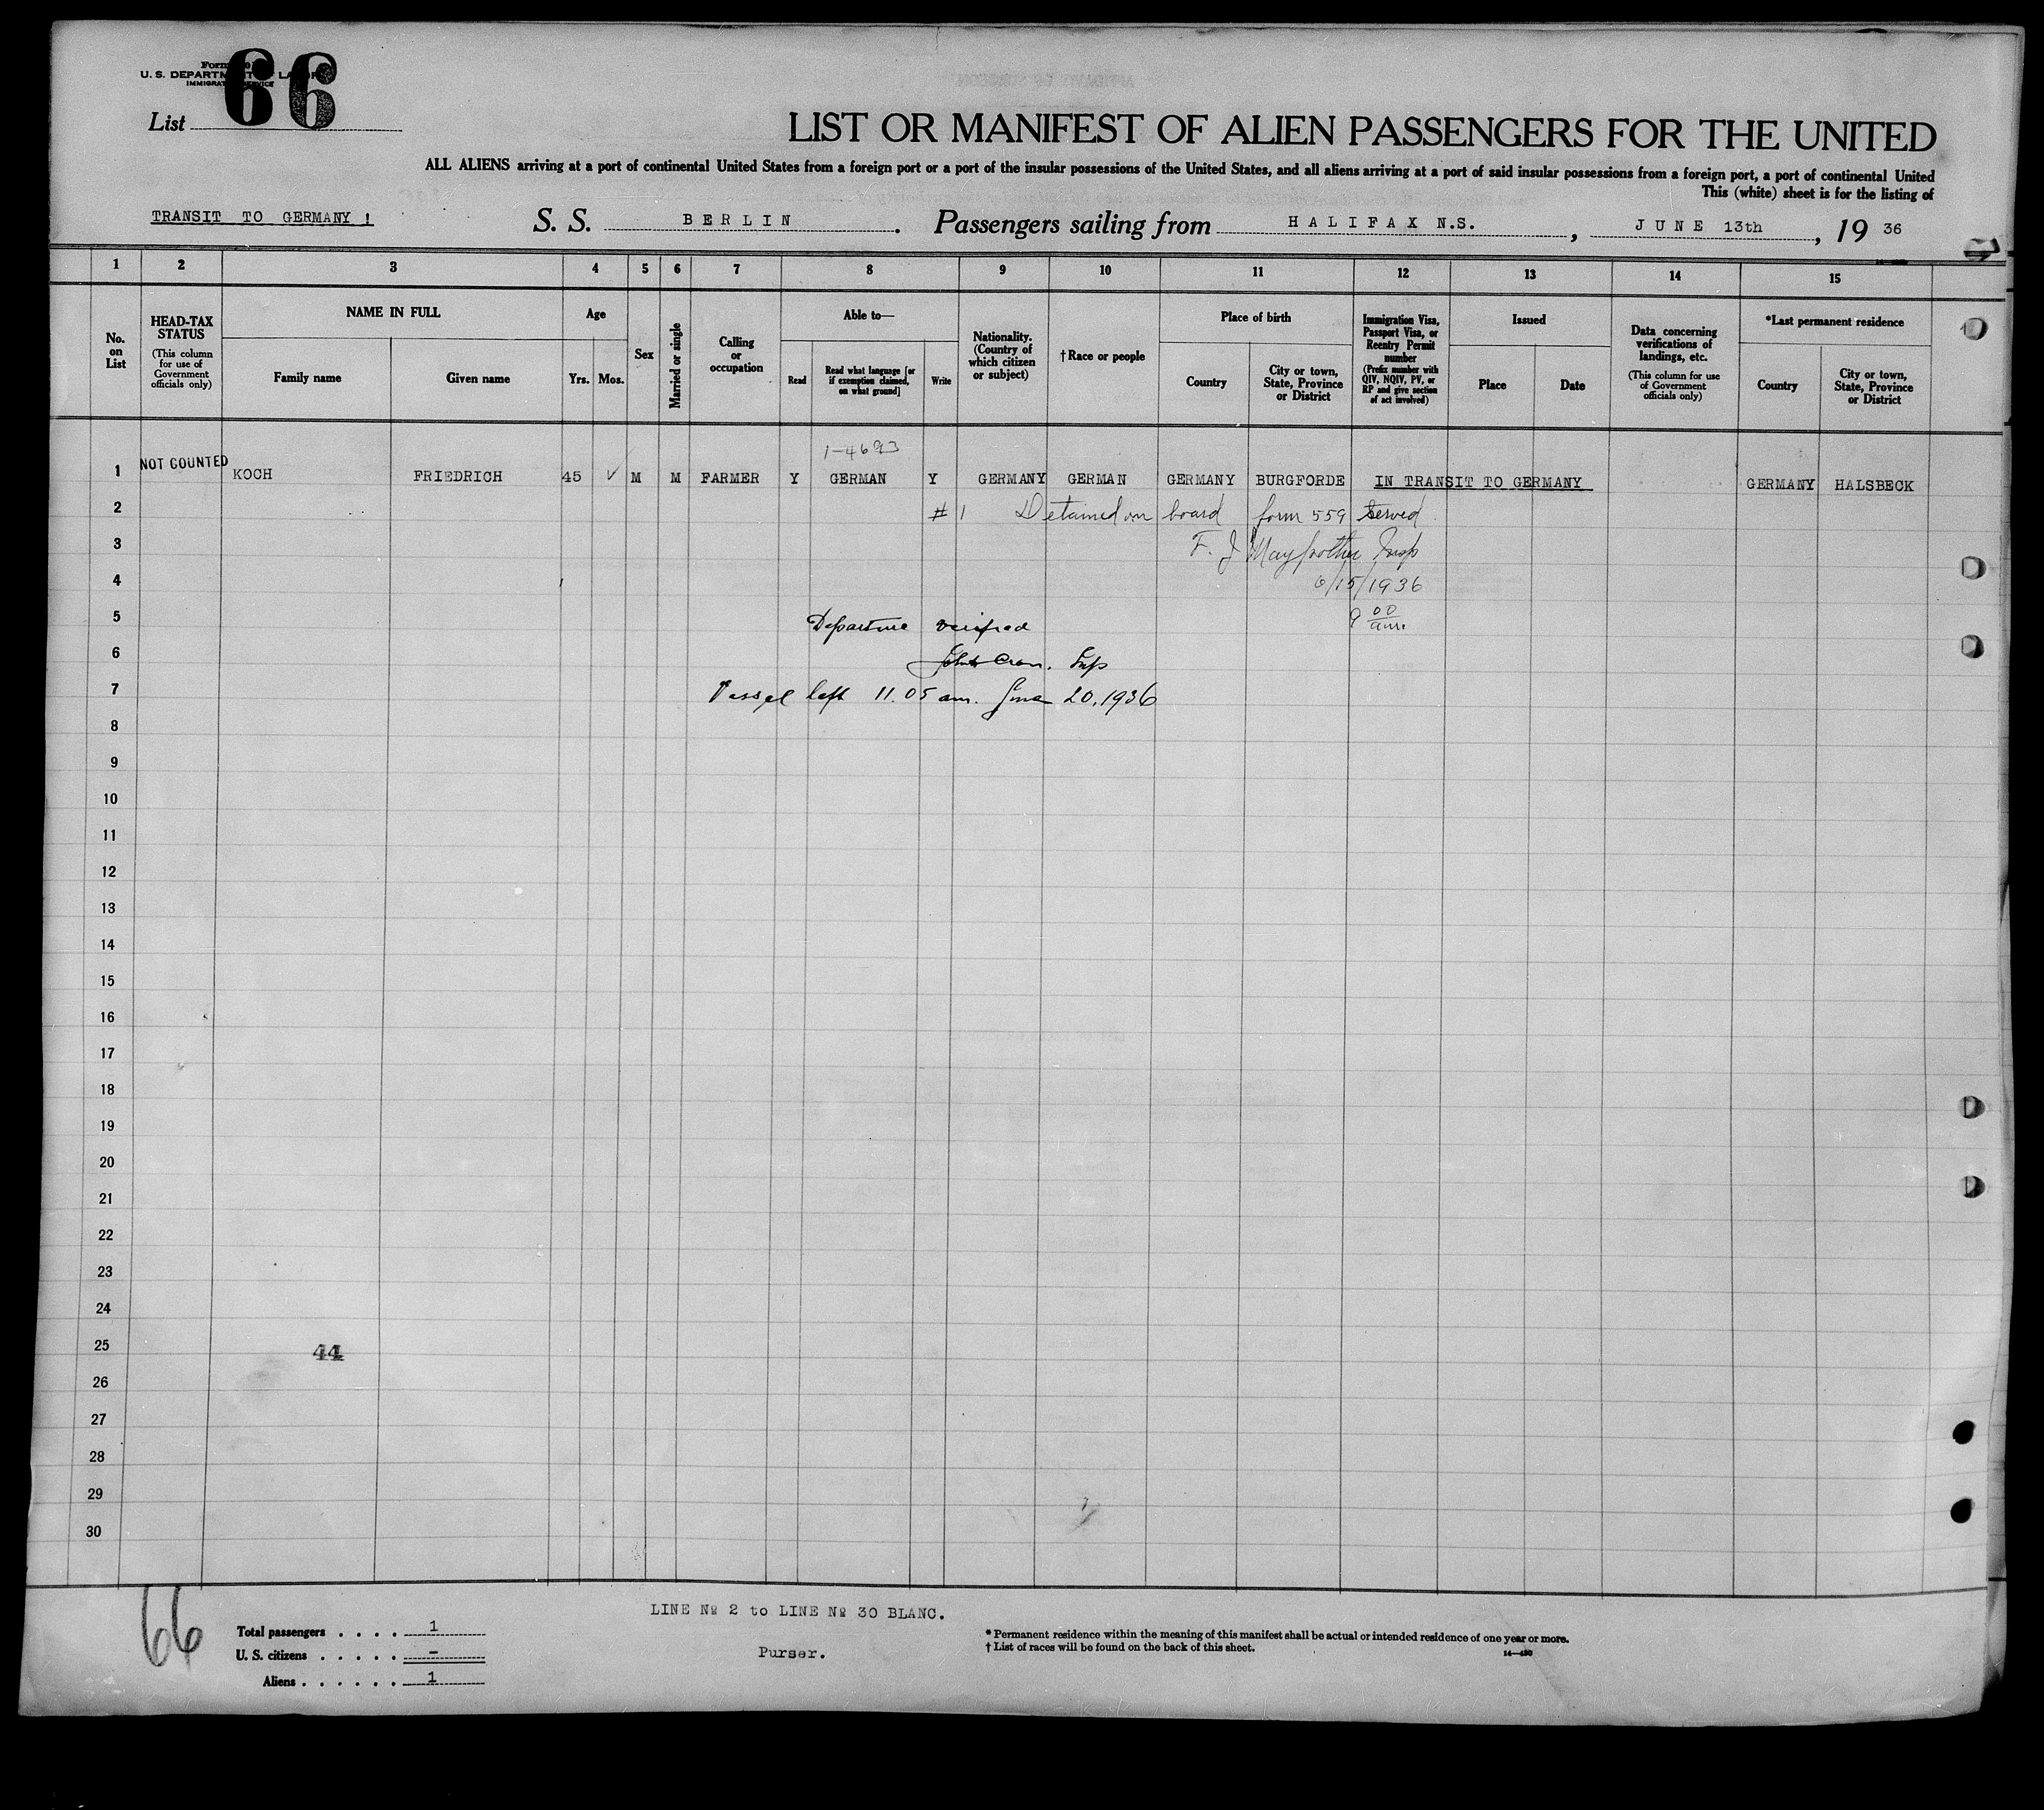 Form
U. S. DEPARTMENT OF LABOR
IMMIGRATION SERVICE
List 66
LIST OR MANIFEST OF ALIEN PASSENGERS FOR THE UNITED
ALL ALIENS arriving at a port of continental United States from a foreign port or a port of the insular possessions of the United States, and all aliens arriving at a port of said insular possessions from a foreign port, a port of continental United
This (white) sheet is for the listing of
TRANSIT TO GERMANY !
S. S. BERLIN. Passengers sailing from HALIFAX N.S., JUNE 13th, 19 36
1 2 3 4 5 6 7 8 9 10 11 12 13 14 15
No. on List
HEAD-TAX STATUS
(This column for use of Government officials only)
NAME IN FULL
Family name
Given name
Age
Yrs. Mos.
Sex
Married or single
Calling or occupation
Able to—
Read
Read what language [or if exemption claimed, on what ground]
Write
Nationality. (Country of which citizen or subject)
†Race or people
Place of birth
Country
City or town, State, Province or District
Immigration Visa, Passport Visa, or Reentry Permit number
(Prefix number with QIV, NQIV, PV, or RP and give section of act involved)
Issued
Place
Date
Data concerning verifications of landings, etc.
(This column for use of Government officials only)
*Last permanent residence
Country
City or town, State, Province or District
1-4693
1 NOT COUNTED KOCH FRIEDRICH 45 ✓ M M FARMER Y GERMAN Y GERMANY GERMAN GERMANY BURGFORDE IN TRANSIT TO GERMANY GERMANY HALSBECK
2 #1 Detained on board form 559 served
3 F. J. Insp
4 6/15/1936
5 Departure verified 9 00 am.
6 John Insp
7 Vessel left 11.05 am. June 20, 1936
8
9
10
11
12
13
14
15
16
17
18
19
20
21
22
23
24
25 44
26
27
28
29
30
66
LINE № 2 to LINE № 30 BLANC.
Purser.
Total passengers . . . . 1
U. S. citizens . . . . . -
Aliens . . . . . . 1
* Permanent residence within the meaning of this manifest shall be actual or intended residence of one year or more.
† List of races will be found on the back of this sheet.
14—430